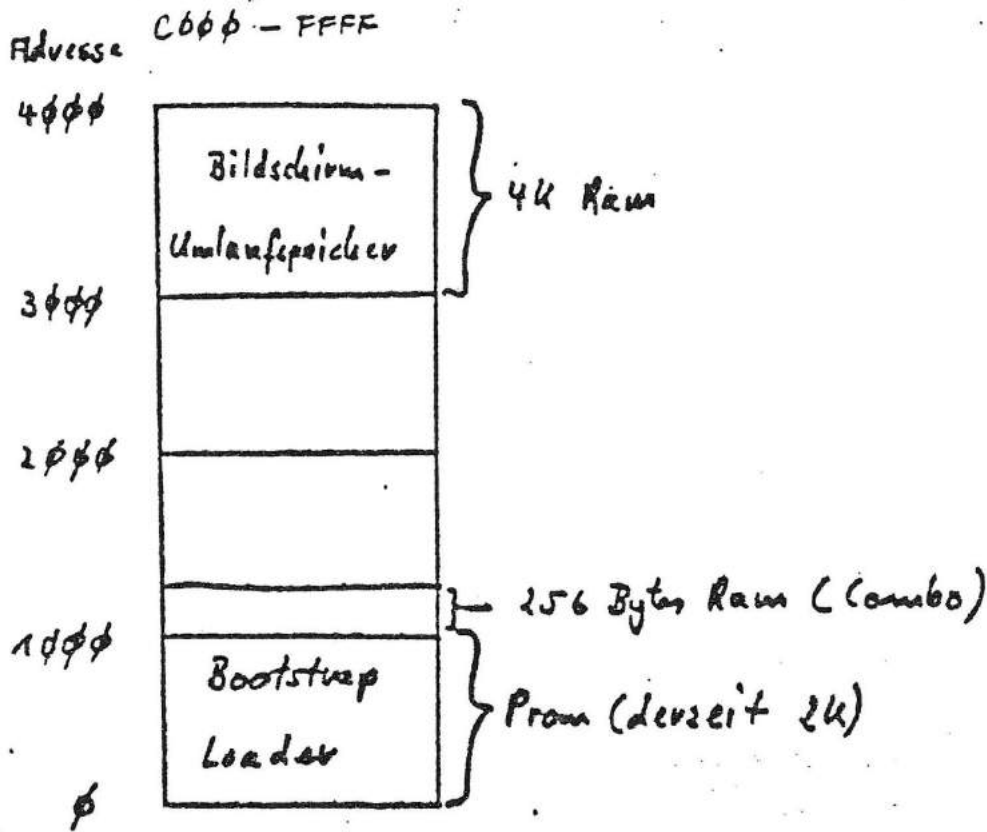 CØØØ - FFFF
Adresse
4ØØØ
Bildschirm-
Umlaufspeicher
4K Ram
3ØØØ
2ØØØ
256 Bytes Ram (Combo)
1ØØØ
Bootstrap
Loader
Prom (derzeit 2K)
Ø